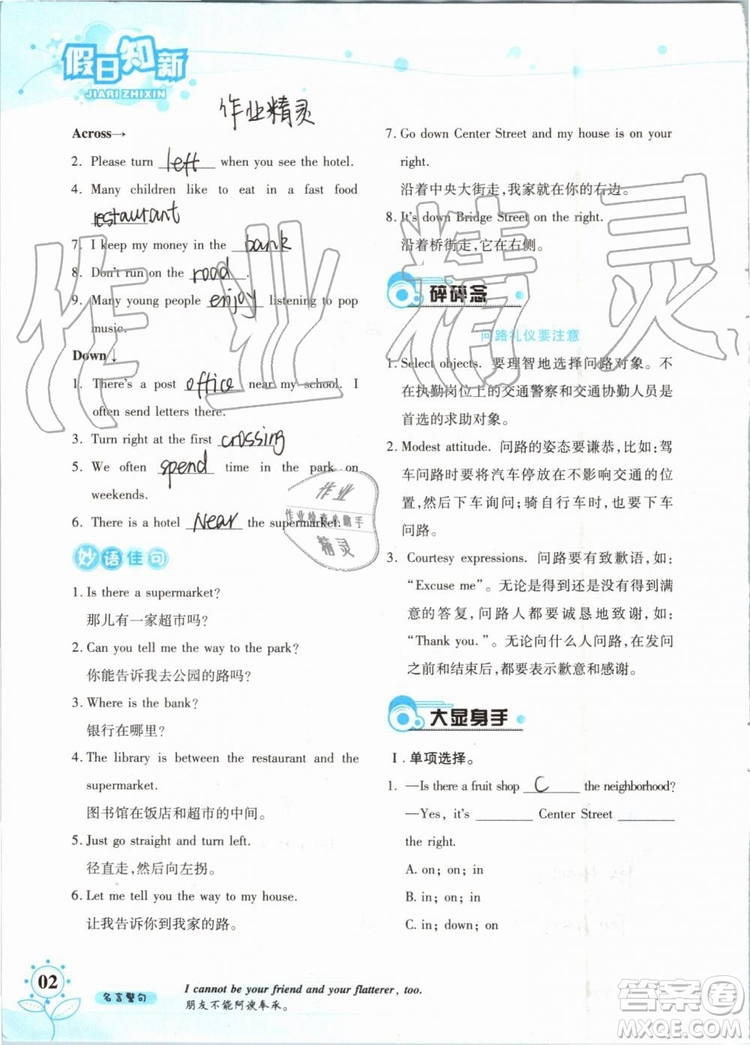 假日知新
JIARI ZHIXIN
作业精灵
Across→
2. Please turn left when you see the hotel.
4. Many children like to eat in a fast food
restaurant
7. I keep my money in the bank
8. Don't run on the road.
9. Many young people enjoy listening to pop
music.
Down↓
1. There's a post office near my school. I
often send letters there.
3. Turn right at the first crossing
5. We often spend time in the park on
weekends.
6. There is a hotel Near the supermarket.
妙语佳句
1. Is there a supermarket?
那儿有一家超市吗?
2. Can you tell me the way to the park?
你能告诉我去公园的路吗?
3. Where is the bank?
银行在哪里?
4. The library is between the restaurant and the
supermarket.
图书馆在饭店和超市的中间。
5. Just go straight and turn left.
径直走,然后左拐。
6. Let me tell you the way to my house.
让我告诉你到我家的路。
7. Go down Center Street and my house is on your
right.
沿着中央大街走,我家就在你的右边。
8. It's down Bridge Street on the right.
沿着桥街走,它在右侧。
碎碎念
问路礼仪要注意
1. Select objects. 要理智地选择问路对象。不
在执勤岗位上的交通警察和交通协勤人员是
首选的求助对象。
2. Modest attitude. 问路的姿态要谦恭,如:驾
车问路时要将汽车停放在不影响交通的位
置,然后下车询问;骑自行车时,也要下车
问路。
3. Courtesy expressions. 问路要有致歉语,如:
“Excuse me”。无论是否得到明确的或是满
意的答复,问路人都要诚恳地致谢,如:
“Thank you.”。无论向什么人问路,在发问
之前和结束时,都要表示歉意和感谢。
大显身手
Ⅰ.单项选择。
1. —Is there a fruit shop C the neighborhood?
—Yes, it's ________ Center Street ________
the right.
A. on; on; in
B. in; in; on
C. in; down; on
作业精灵
作业
作业检查小助手
精灵
02
名言警句
I cannot be your friend and your flatterer, too.
朋友不能阿谀奉承。
答案圈
MXQE.COM